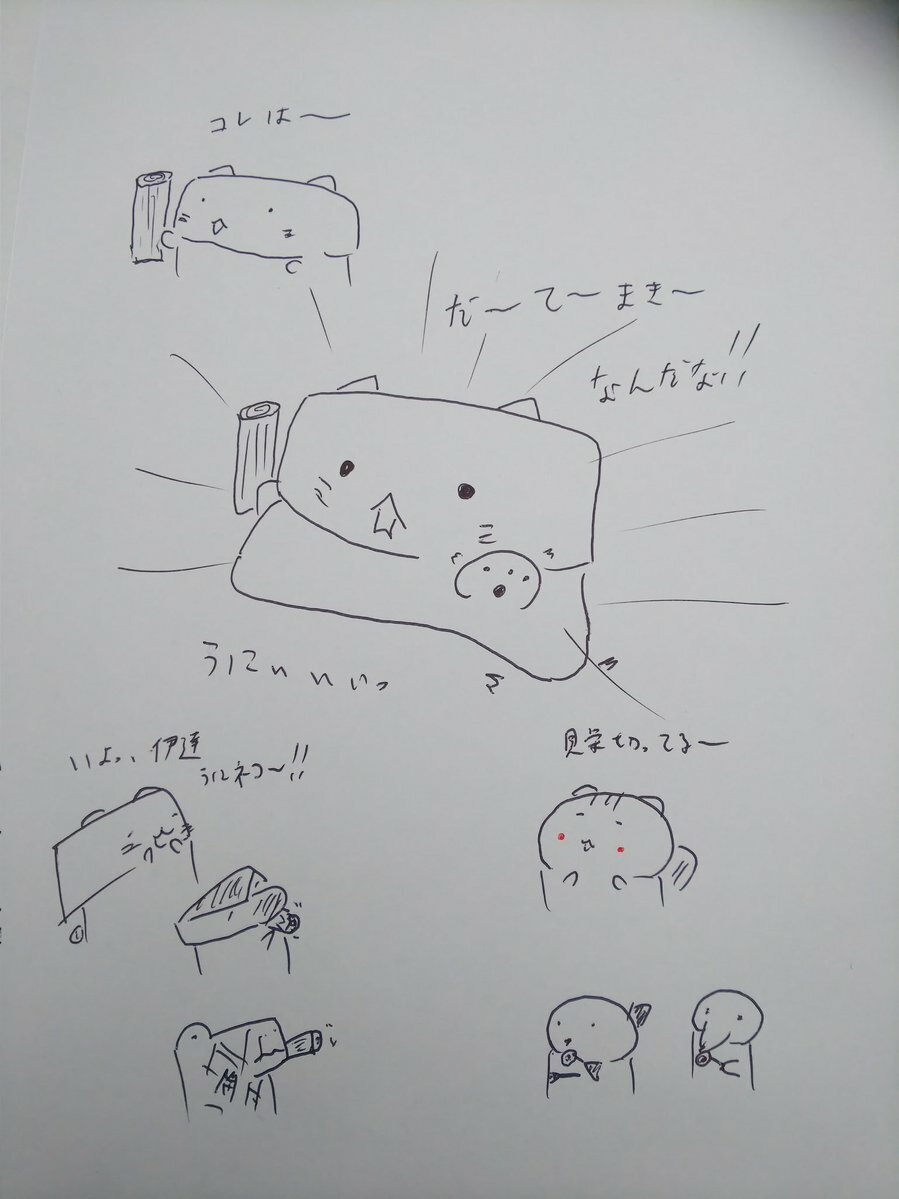 コレは〜
だ〜て〜まき〜
なんだな!!
うにぃぃぃっ
いよっ、伊達
うにネコ〜!!
見栄切ってる〜